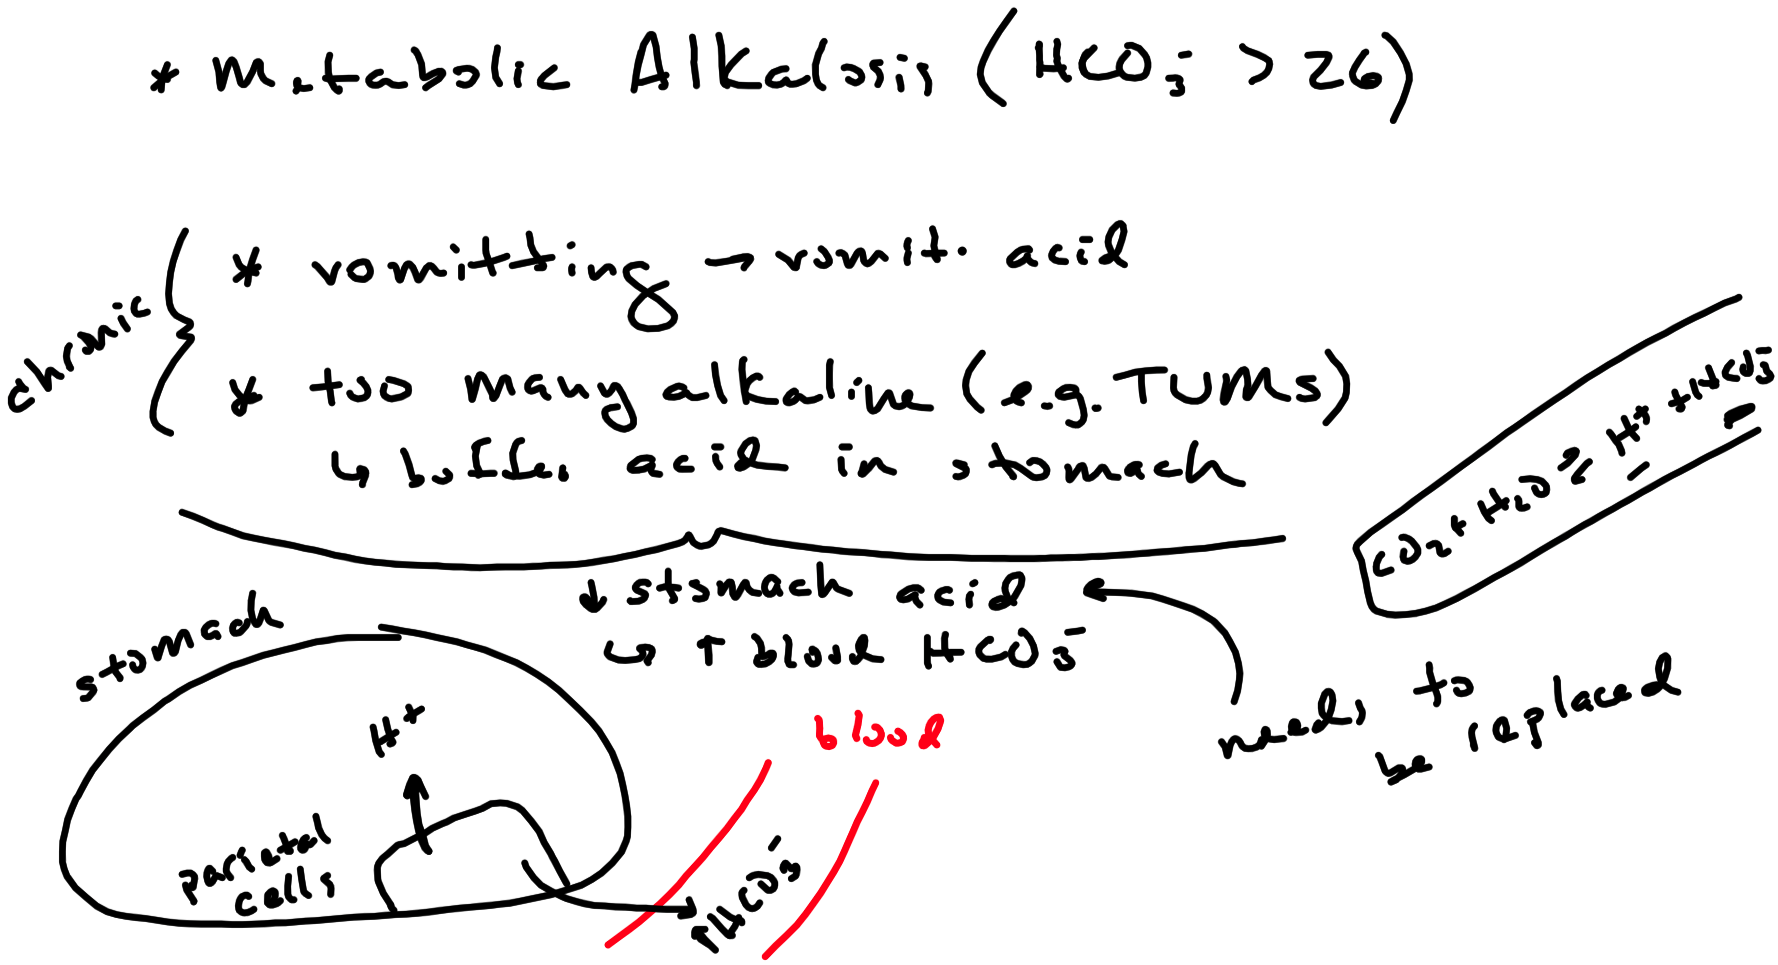 * Metabolic Alkalosis (HCO₃⁻ > 26)
chronic
* vomitting → vomit. acid
* too many alkaline (e.g. TUMs)
↳ buffer acid in stomach
CO₂ + H₂O ⇌ H⁺ + HCO₃⁻
↓ stomach acid
↳ ↑ blood HCO₃⁻
needs to
be replaced
stomach
H⁺
parietal
cells
blood
↑HCO₃⁻